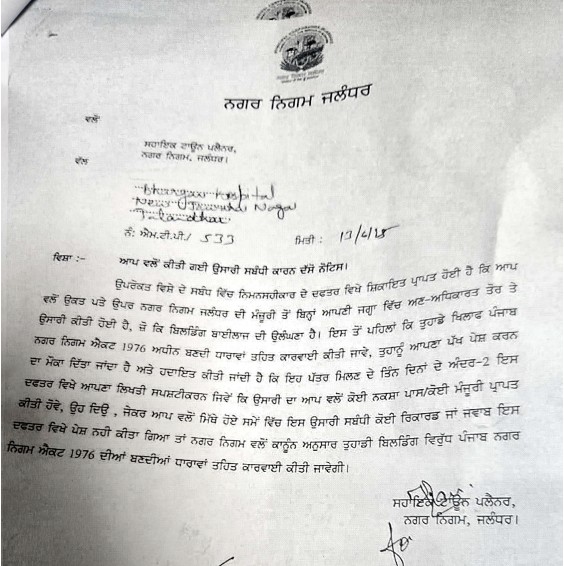 ਨਗਰ ਨਿਗਮ ਜਲੰਧਰ
ਵਲੋਂ
ਸਹਾਇਕ ਟਾਊਨ ਪਲੈਨਰ,
ਨਗਰ ਨਿਗਮ, ਜਲੰਧਰ।
ਵੱਲ
Bhargav Hospital
New Jawahar Nagar
Jalandhar
ਨੰ: ਐਮ.ਟੀ.ਪੀ/ 533 ਮਿਤੀ :
ਵਿਸ਼ਾ :- ਆਪ ਵਲੋਂ ਕੀਤੀ ਗਈ ਉਸਾਰੀ ਸਬੰਧੀ ਕਾਰਨ ਦੱਸੋ ਨੋਟਿਸ।
ਉਪਰੋਕਤ ਵਿਸ਼ੇ ਦੇ ਸਬੰਧ ਵਿੱਚ ਨਿਮਨਸਹੀਕਾਰ ਦੇ ਦਫਤਰ ਵਿਖੇ ਸ਼ਿਕਾਇਤ ਪ੍ਰਾਪਤ ਹੋਈ ਹੈ ਕਿ ਆਪ
ਵਲੋਂ ਉਕਤ ਪਤੇ ਉਪਰ ਨਗਰ ਨਿਗਮ ਜਲੰਧਰ ਦੀ ਮੰਜੂਰੀ ਤੋਂ ਬਿਨ੍ਹਾਂ ਆਪਣੀ ਜਗ੍ਹਾ ਵਿੱਚ ਅਣ-ਅਧਿਕਾਰਤ ਤੋਰ ਤੇ
ਉਸਾਰੀ ਕੀਤੀ ਹੋਈ ਹੈ, ਜੋ ਕਿ ਬਿਲਡਿੰਗ ਬਾਈਲਾਜ ਦੀ ਉਲੰਘਣਾ ਹੈ। ਇਸ ਤੋਂ ਪਹਿਲਾਂ ਕਿ ਤੁਹਾਡੇ ਖਿਲਾਫ ਪੰਜਾਬ
ਨਗਰ ਨਿਗਮ ਐਕਟ 1976 ਅਧੀਨ ਬਣਦੀ ਧਾਰਾਵਾਂ ਤਹਿਤ ਕਾਰਵਾਈ ਕੀਤੀ ਜਾਵੇ, ਤੁਹਾਨੂੰ ਆਪਣਾ ਪੱਖ ਪੇਸ਼ ਕਰਨ
ਦਾ ਮੌਕਾ ਦਿੱਤਾ ਜਾਂਦਾ ਹੈ ਅਤੇ ਹਦਾਇਤ ਕੀਤੀ ਜਾਂਦੀ ਹੈ ਕਿ ਇਹ ਪੱਤਰ ਮਿਲਣ ਦੇ ਤਿੰਨ ਦਿਨਾਂ ਦੇ ਅੰਦਰ-2 ਇਸ
ਦਫਤਰ ਵਿਖੇ ਆਪਣਾ ਲਿਖਤੀ ਸਪਸ਼ਟੀਕਰਨ ਜਿਵੇਂ ਕਿ ਉਸਾਰੀ ਦਾ ਆਪ ਵਲੋਂ ਕੋਈ ਨਕਸ਼ਾ ਪਾਸ/ਕੋਈ ਮੰਜੂਰੀ ਪ੍ਰਾਪਤ
ਕੀਤੀ ਹੋਵੇ, ਉਹ ਦਿਓ , ਜੇਕਰ ਆਪ ਵਲੋਂ ਮਿੱਥੇ ਹੋਏ ਸਮੇਂ ਵਿੱਚ ਇਸ ਉਸਾਰੀ ਸਬੰਧੀ ਕੋਈ ਰਿਕਾਰਡ ਜਾਂ ਜਵਾਬ ਇਸ
ਦਫਤਰ ਵਿਖੇ ਪੇਸ਼ ਨਹੀ ਕੀਤਾ ਗਿਆ ਤਾਂ ਨਗਰ ਨਿਗਮ ਵਲੋਂ ਕਾਨੂੰਨ ਅਨੁਸਾਰ ਤੁਹਾਡੀ ਬਿਲਡਿੰਗ ਵਿਰੁੱਧ ਪੰਜਾਬ ਨਗਰ
ਨਿਗਮ ਐਕਟ 1976 ਦੀਆਂ ਬਣਦੀਆਂ ਧਾਰਾਵਾਂ ਤਹਿਤ ਕਾਰਵਾਈ ਕੀਤੀ ਜਾਵੇਗੀ।
ਸਹਾਇਕ ਟਾਊਨ ਪਲੈਨਰ,
ਨਗਰ ਨਿਗਮ, ਜਲੰਧਰ।